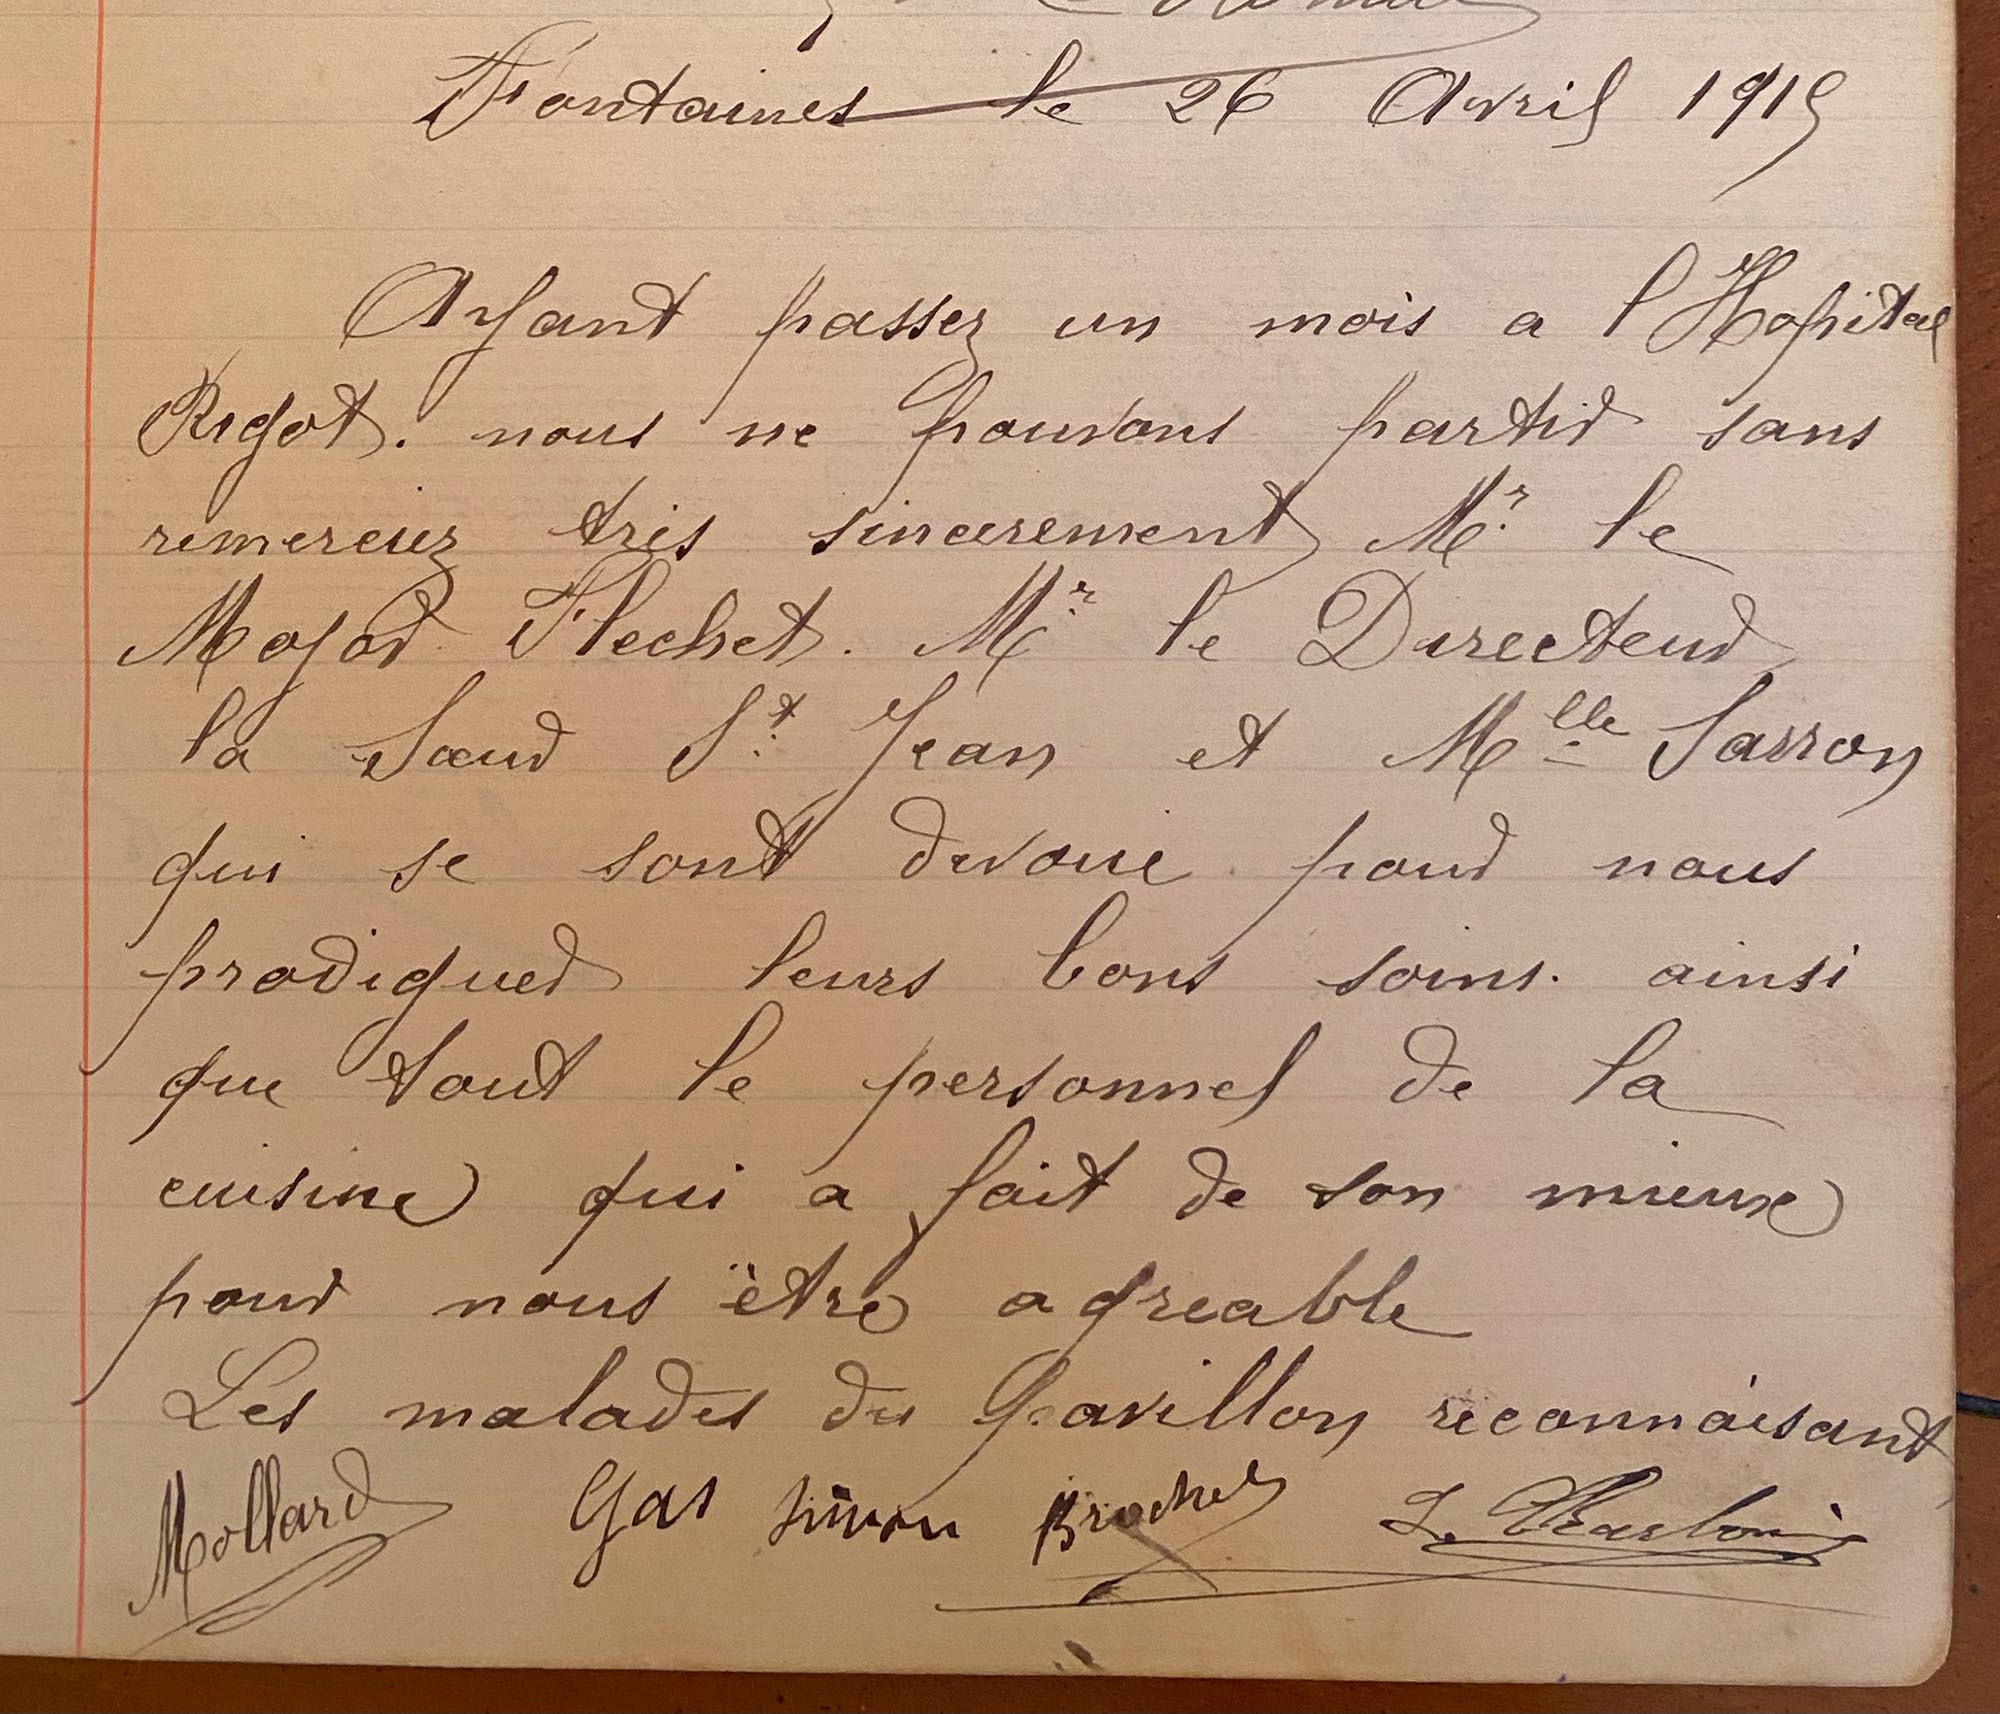 Fontaines le 26 Avril 1915
Ayant passez un mois a l'Hopital
Rigot. nous ne pouvons partir sans
remerciez tres sincerement Mr. le
Major Flechet. Mr. le Directeur
la Sœur St. Jean et Mlle Sarron
qui se sont devoue pour nous
prodiguer leurs bons soins. ainsi
que tout le personnel de la
cuisine qui a fait de son mieux
pour nous être agreable
Les malades du Pavillon reconnaisant
Mollard Gas Simon Brochet